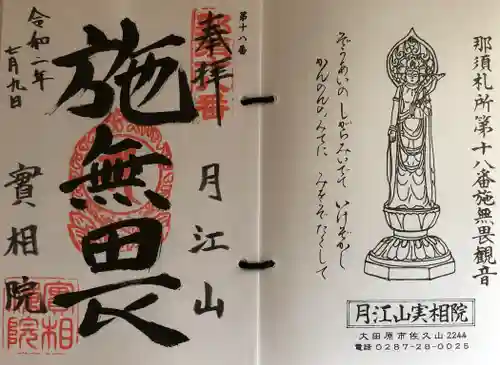 那須札所第十八番施無畏観音
ぞうあいの しがらみいでて いけぞかし
かんのんの みてに みをぞたくして
月江山実相院
大田原市佐久山2244
電話0287-28-0025
第十八番
奉拝
月江山
施無畏
令和二年
七月九日
實相院